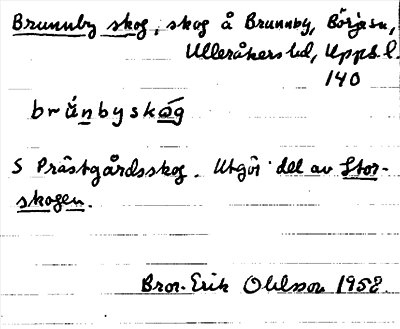 Brunnby skog, skog å Brunnby, Börje sn,
Ulleråkers hd, Upps. l.
140
brúnbyskóg
S Prästgårdsskog. Utgör del av Stor-
skogen.
Bror-Erik Ohlsson 1952